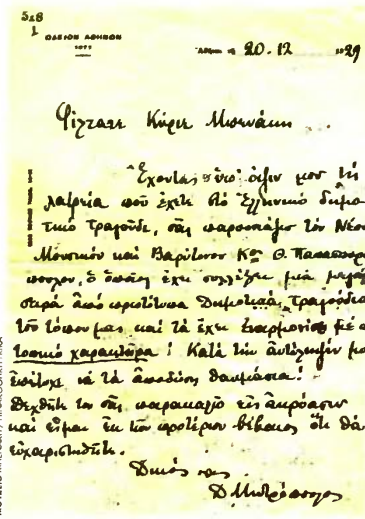 528
1
ΩΔΕΙΟΝ ΑΘΗΝΩΝ
20.12 1929
Φίλτατε Κύριε Μπενάκη
Ἔχοντας ὑπ' ὄψιν μου τὴ
λατρεία ποῦ ἔχετε στὸ Ἑλληνικὸ δημο
τικὸ τραγοῦδι, σᾶς παρουσιάζω τὸν Νέον
Μουσικὸν καὶ Βαρύτονον Κον Θ. Παπασταυρο
πουλον, ὁ ὁποῖος ἔχει συλλέξει μιὰ μεγάλη
σειρὰ ἀπὸ πρωτότυπα Δημοτικὰ τραγούδια
τοῦ τόπου μας καὶ τὰ ἔχει ἐναρμονίσει μὲ
τοπικὸ χαρακτῆρα! Κατὰ τὴν ἀντίληψήν μου
ἐπέτυχε νὰ τὰ ἀποδώσῃ θαυμάσια!
Δεχθῆτε τον σᾶς παρακαλῶ εἰς ἀκρόασιν
καὶ εἶμαι ἐκ τῶν προτέρων βέβαιος ὅτι θὰ
εὐχαριστηθῆτε.
Δικός σας
Δ. Μητρόπουλος